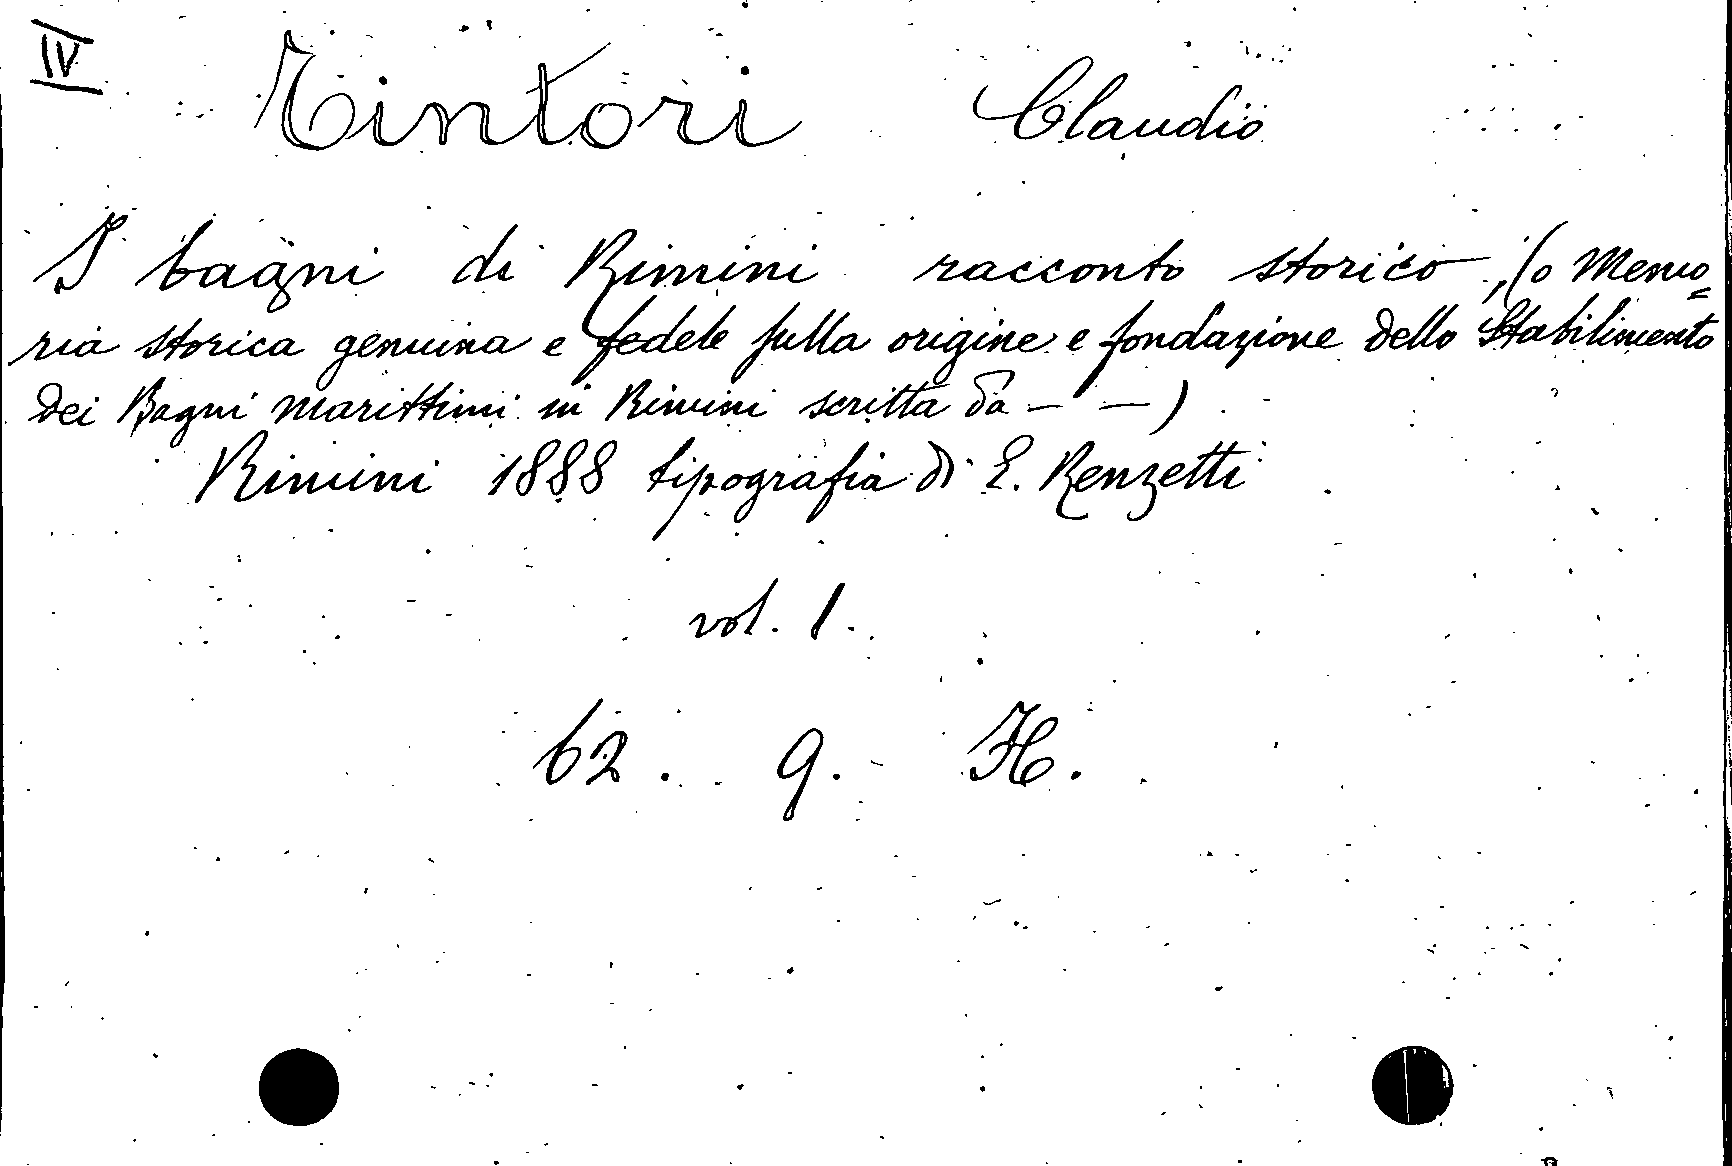 IV
Tintori Claudio
I bagni di Rimini racconto storico, (o Memo=
ria storica genuina e fedele sulla origine e fondazione dello Stabilimento
dei Bagni marittimi in Rimini scritta da — —)
Rimini 1888 tipografia di E. Renzetti
vol. 1.
62. 9. H.